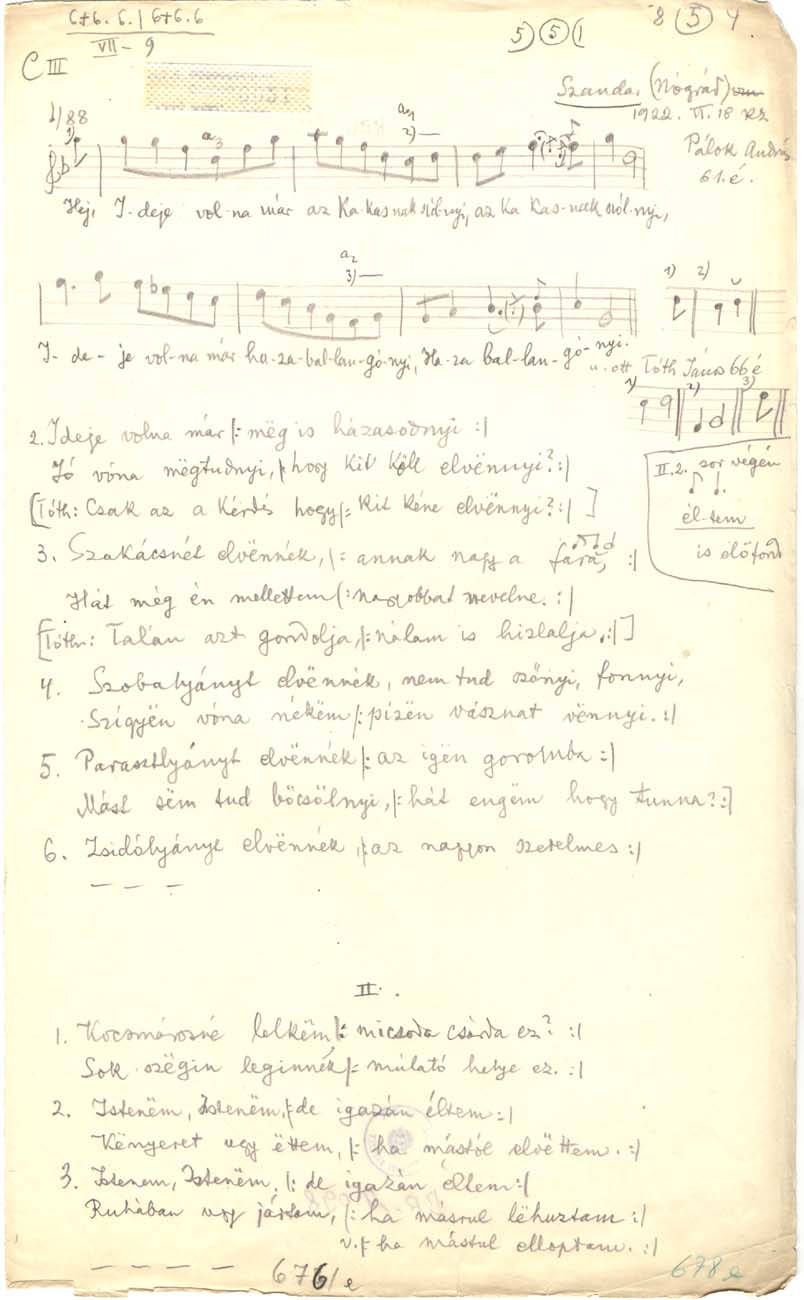 6+6. 6. | 6+6. 6
VII - 9
5) (5) (1
8 (5) 4.
C III
Szanda, (Nógrád)
1922. VI. 18 KZ
1/88
Pálok András
61. é.
Hej, I-deje vol-na már az Ka-kasnak szól-nyi, az Ka kas-nak szól-nyi,
a2
3)—
1) 2)
I-de-je vol-na már ha-za-bal-lan-gó-nyi, Ha-za bal-lan-gó-nyi.
u. ott Tóth János 66 é
1) 2) 3)
2. Ideje volna már |: mëg is házasodnyi :|
Jó vóna mëgtudnyi, |: hogy kit këll elvënnyi? :|
[Tóth: Csak az a kérdés hogy |: kit kéne elvënnyi? :| ]
II. 2. sor végén
él-tem
is előford
3. Szakácsnét elvënnék, |: annak nagy a fara, :|
Hát még én mellettem |: nagyobbat nevelne. :|
[Tóth: Talán azt gondolja, |: nálam is hizlalja. :| ]
4. Szobalyányt elvënnék, nem tud szőnyi, fonnyi,
Szígyën vóna nékëm |: pízën vásznat vënnyi. :|
5. Parasztlyányt elvënnék |: az igën goromba :|
Mást sëm tud böcsölnyi, |: hát engëm hogy tunna? :|
6. Zsidólyányt elvënnék, |: az nagyon szerelmes :|
– – –
II.
1. Kocsmárosné lelkëm |: micsoda csárda ez? :|
Sok szëgin leginnek |: múlató helye ez. :|
2. Istenëm, Istenëm, |: de igazán éltem :|
Kënyeret ugy ëttem, |: ha mástól elvëttem. :|
3. Istenem, Istenëm, |: de igazán éltem :|
Ruhában ugy jártam, |: ha másrul lëhuztam :|
v. |: ha mástul elloptam. :|
– – – –
676/e
678 e